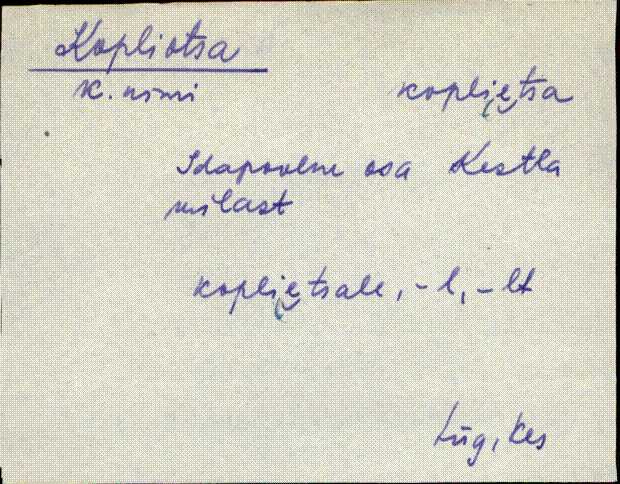 Kopliotsa
k. nimi kopli̮e̮tsa
Idapoolne osa Kestla
külast
kopli̮e̮tsale, -l, -lt
Lüg, Kes